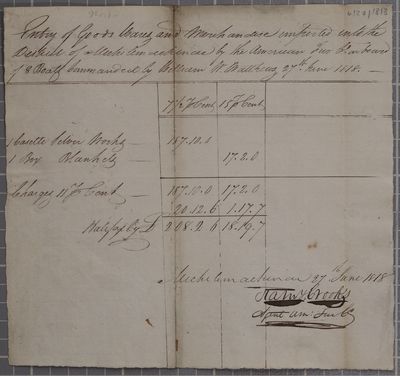 Entry of Goods Wares and Merchandise imported into the
District of Michilimackinac by the American Fur Co on board
of 8 Boats Commanded by William W. Matthews 27th June 1818. —
7½ pr Cent 15 pr Cent
1 Casette Silver Works — 187.10.0
1 Box Blankets — 17.2.0
Charges 11 pr Cent — 187.10.0 17.2.0
20.12.6 1.17.7
Halifax Cy £ 208.2.6 18.19.7
Michilimackinac 27th June 1818
Ramsy Crooks
Agent Am: Fur Co